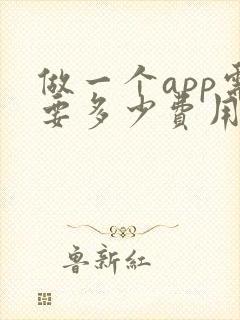 做一个app需
要多少费用
鲁新红